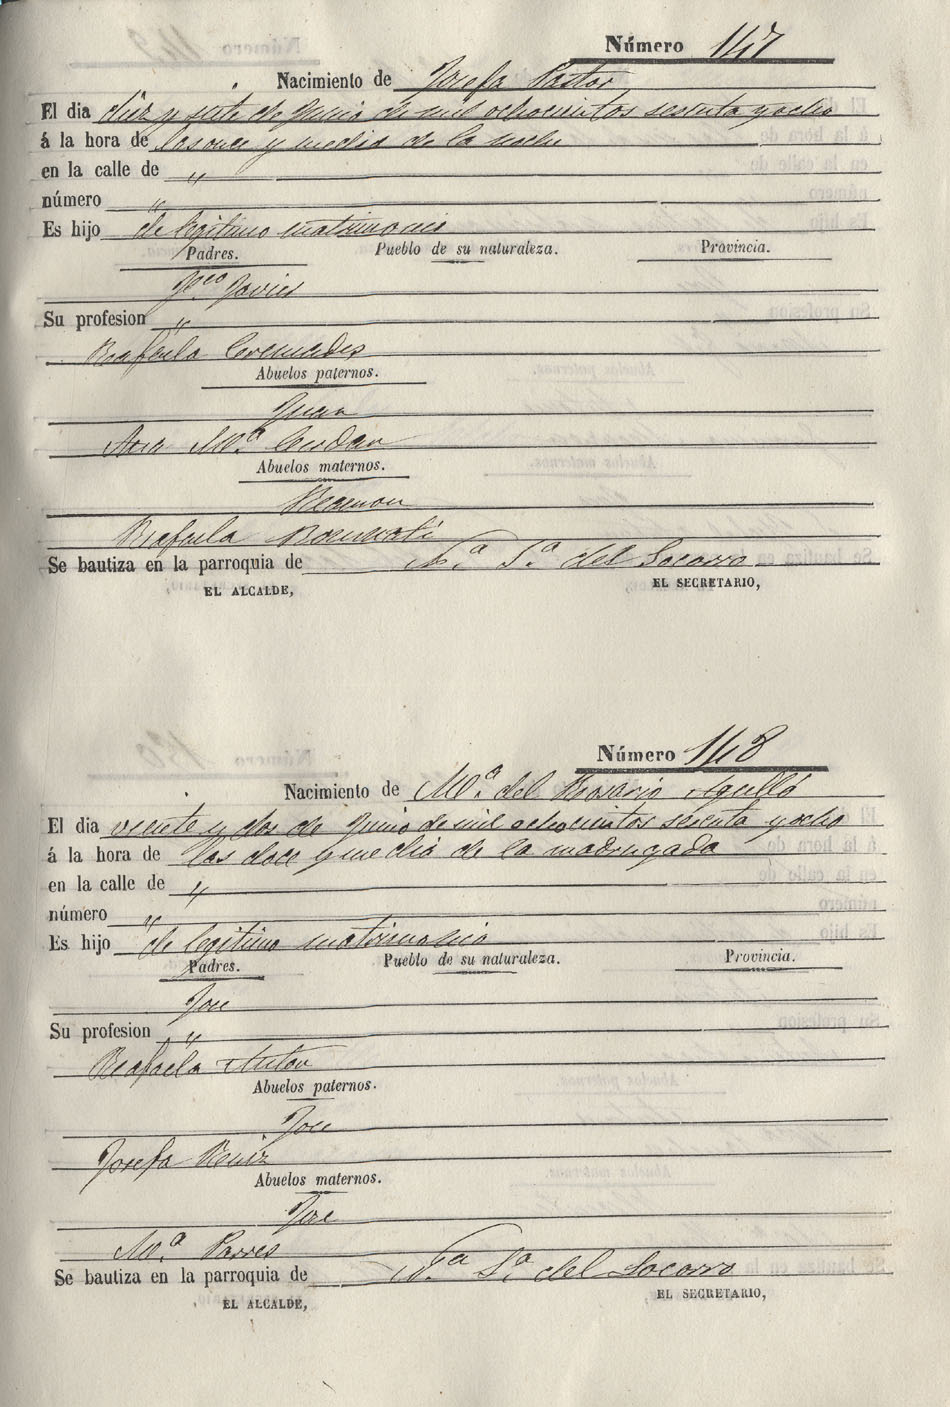 Número 147
Nacimiento de Josefa Pastor
El dia diez y siete de Junio de mil ochocientos sesenta y ocho
á la hora de las once y media de la noche
en la calle de "
número "
Es hijo de legitimo matrimonio
Padres. Pueblo de su naturaleza. Provincia.
Fco Javier
Su profesion "
Rafaela Cremades
Abuelos paternos.
Juan
Ana Mª
Abuelos maternos.
Ramon
Rafaela
Se bautiza en la parroquia de Nª Sª del Socorro
EL ALCALDE, EL SECRETARIO,
Número 148
Nacimiento de Mª del Rosario Agulló
El dia veinte y dos de Junio de mil ochocientos sesenta y ocho
á la hora de las doce y media de la madrugada
en la calle de "
número "
Es hijo de legitimo matrimonio
Padres. Pueblo de su naturaleza. Provincia.
Jose
Su profesion "
Rafaela Anton
Abuelos paternos.
Jose
Josefa Ruiz
Abuelos maternos.
Jose
Mª Parres
Se bautiza en la parroquia de Nª Sª del Socorro
EL ALCALDE, EL SECRETARIO,